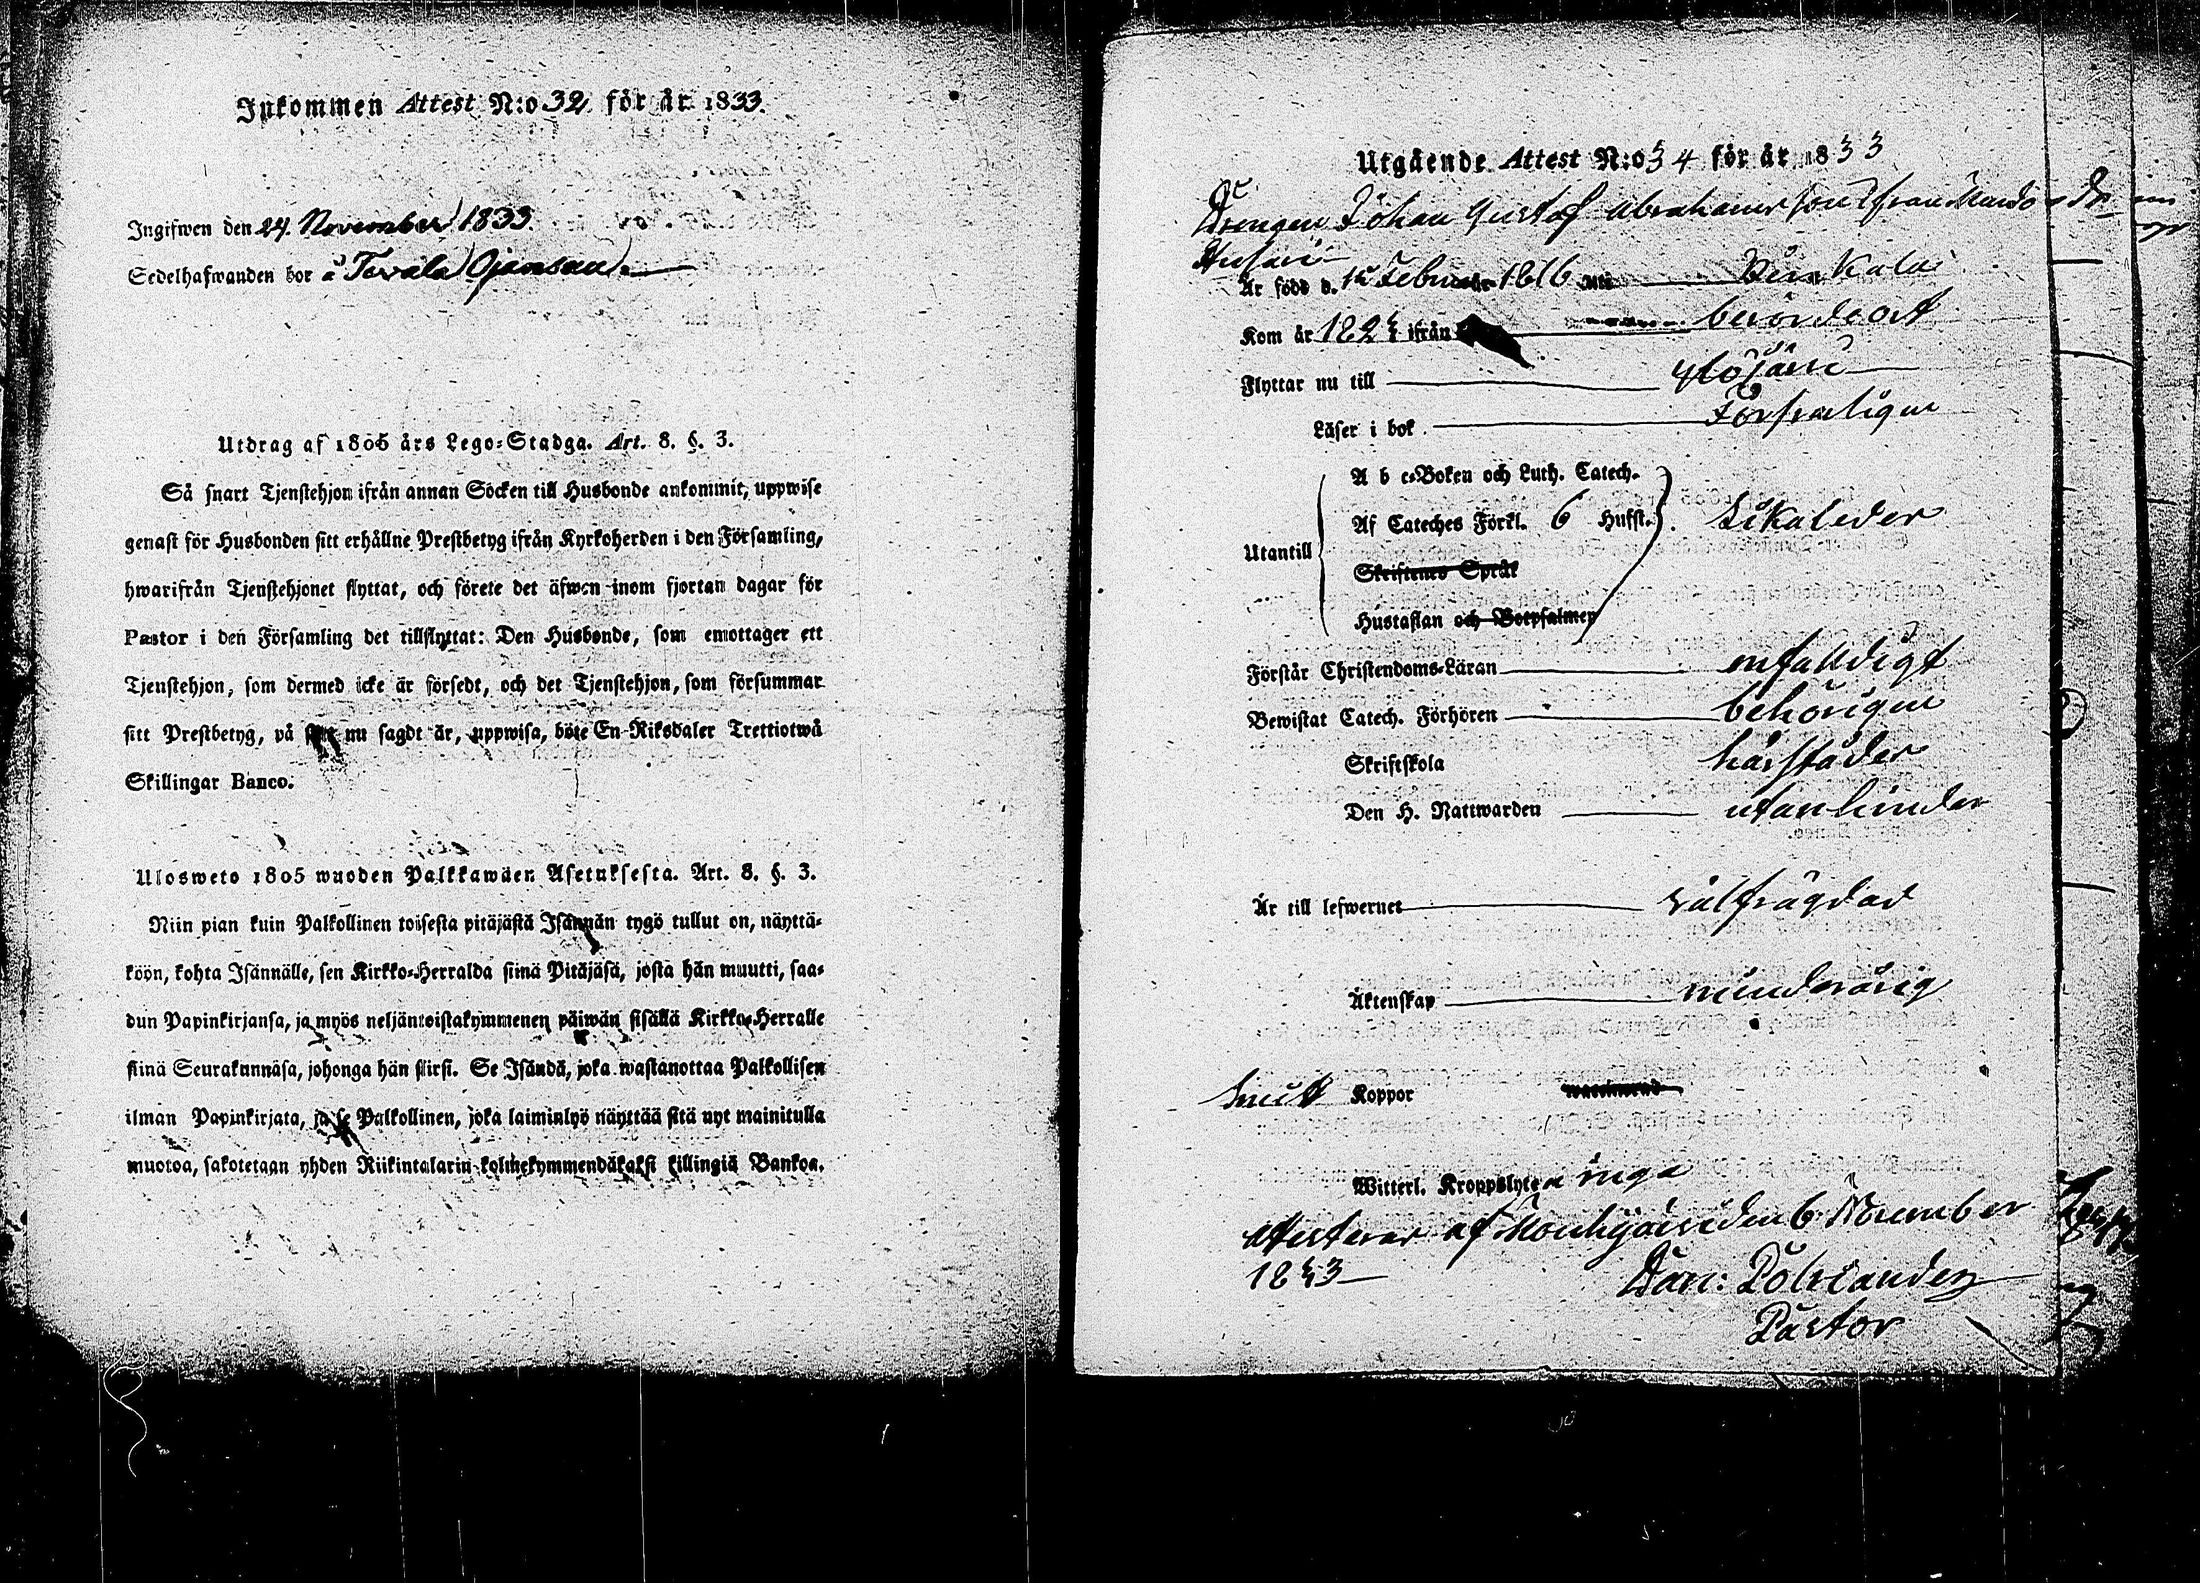 Inkommen Attest N:o 32 för år 1833.
Ingifwen den 24. November 1833.
Sedelhafwanden bor å Tevala Ojansuu.
Utdrag af 1805 års Lego-Stadga. Art. 8. §. 3.
Så snart Tjenstehjon ifrån annan Socken till Husbonde ankommit, uppwise
genast för Husbonden sitt erhållne Prestbetyg ifrån Kyrkoherden i den Församling,
hwarifrån Tjenstehjonet flyttat, och förete det äfwen inom fjortan dagar för
Pastor i den Församling det tillflyttat: Den Husbonde, som emottager ett
Tjenstehjon, som dermed icke är försedt, och det Tjenstehjon, som försummar
sitt Prestbetyg, på sätt nu sagdt är, uppwisa, böte En Riksdaler Trettiotwå
Skillingar Banco.
Ulosweto 1805 wuoden Palkkawäen Asetuksesta. Art. 8. §. 3.
Niin pian kuin Palkollinen toisesta pitäjästä Isännän tygö tullut on, näyttä-
köön, kohta Isännälle, sen Kirkko-Herralda siinä Pitäjäsä, josta hän muutti, saa-
dun Papinkirjansa, ja myös neljäntoistakymmenen päiwän sisällä Kirkko-Herralle
siinä Seurakunnasa, johonga hän siirsi. Se Isändä, joka wastanottaa Palkollisen
ilman Papinkirjata, ja se Palkollinen, joka laiminlyö näyttää sitä nyt mainitulla
muotoa, sakotetaan yhden Riikintalarin kolmekymmendäkaksi killingiä Bankoa.
Utgående Attest N:o 34 för år 1833
Drengen Johan Gustaf Abrahamsson från
Är född d. 15 Februar 1816 uti
Kom år 182 ifrån
Flyttar nu till
Läser i bok Försvarligen
A b c-Boken och Luth. Catech.
Utantill Af Cateches Förkl. 6 Hufst. likaleder
Skriftenes Språk
Hustaflan och Botpsalmer
Förstår Christendoms-Läran enfalldigt
Bewistat Catech. Förhören behörigen
Skriftskola härstäder
Den H. Nattwarden utan hinder
Är till lefwernet välfrägdad
Äktenskap minderårig
haft Koppor
Witterl. Kroppslyte inga
Attesterar af Mouhijärvi den 6 November
1833 Dan: Polviander
Pastor